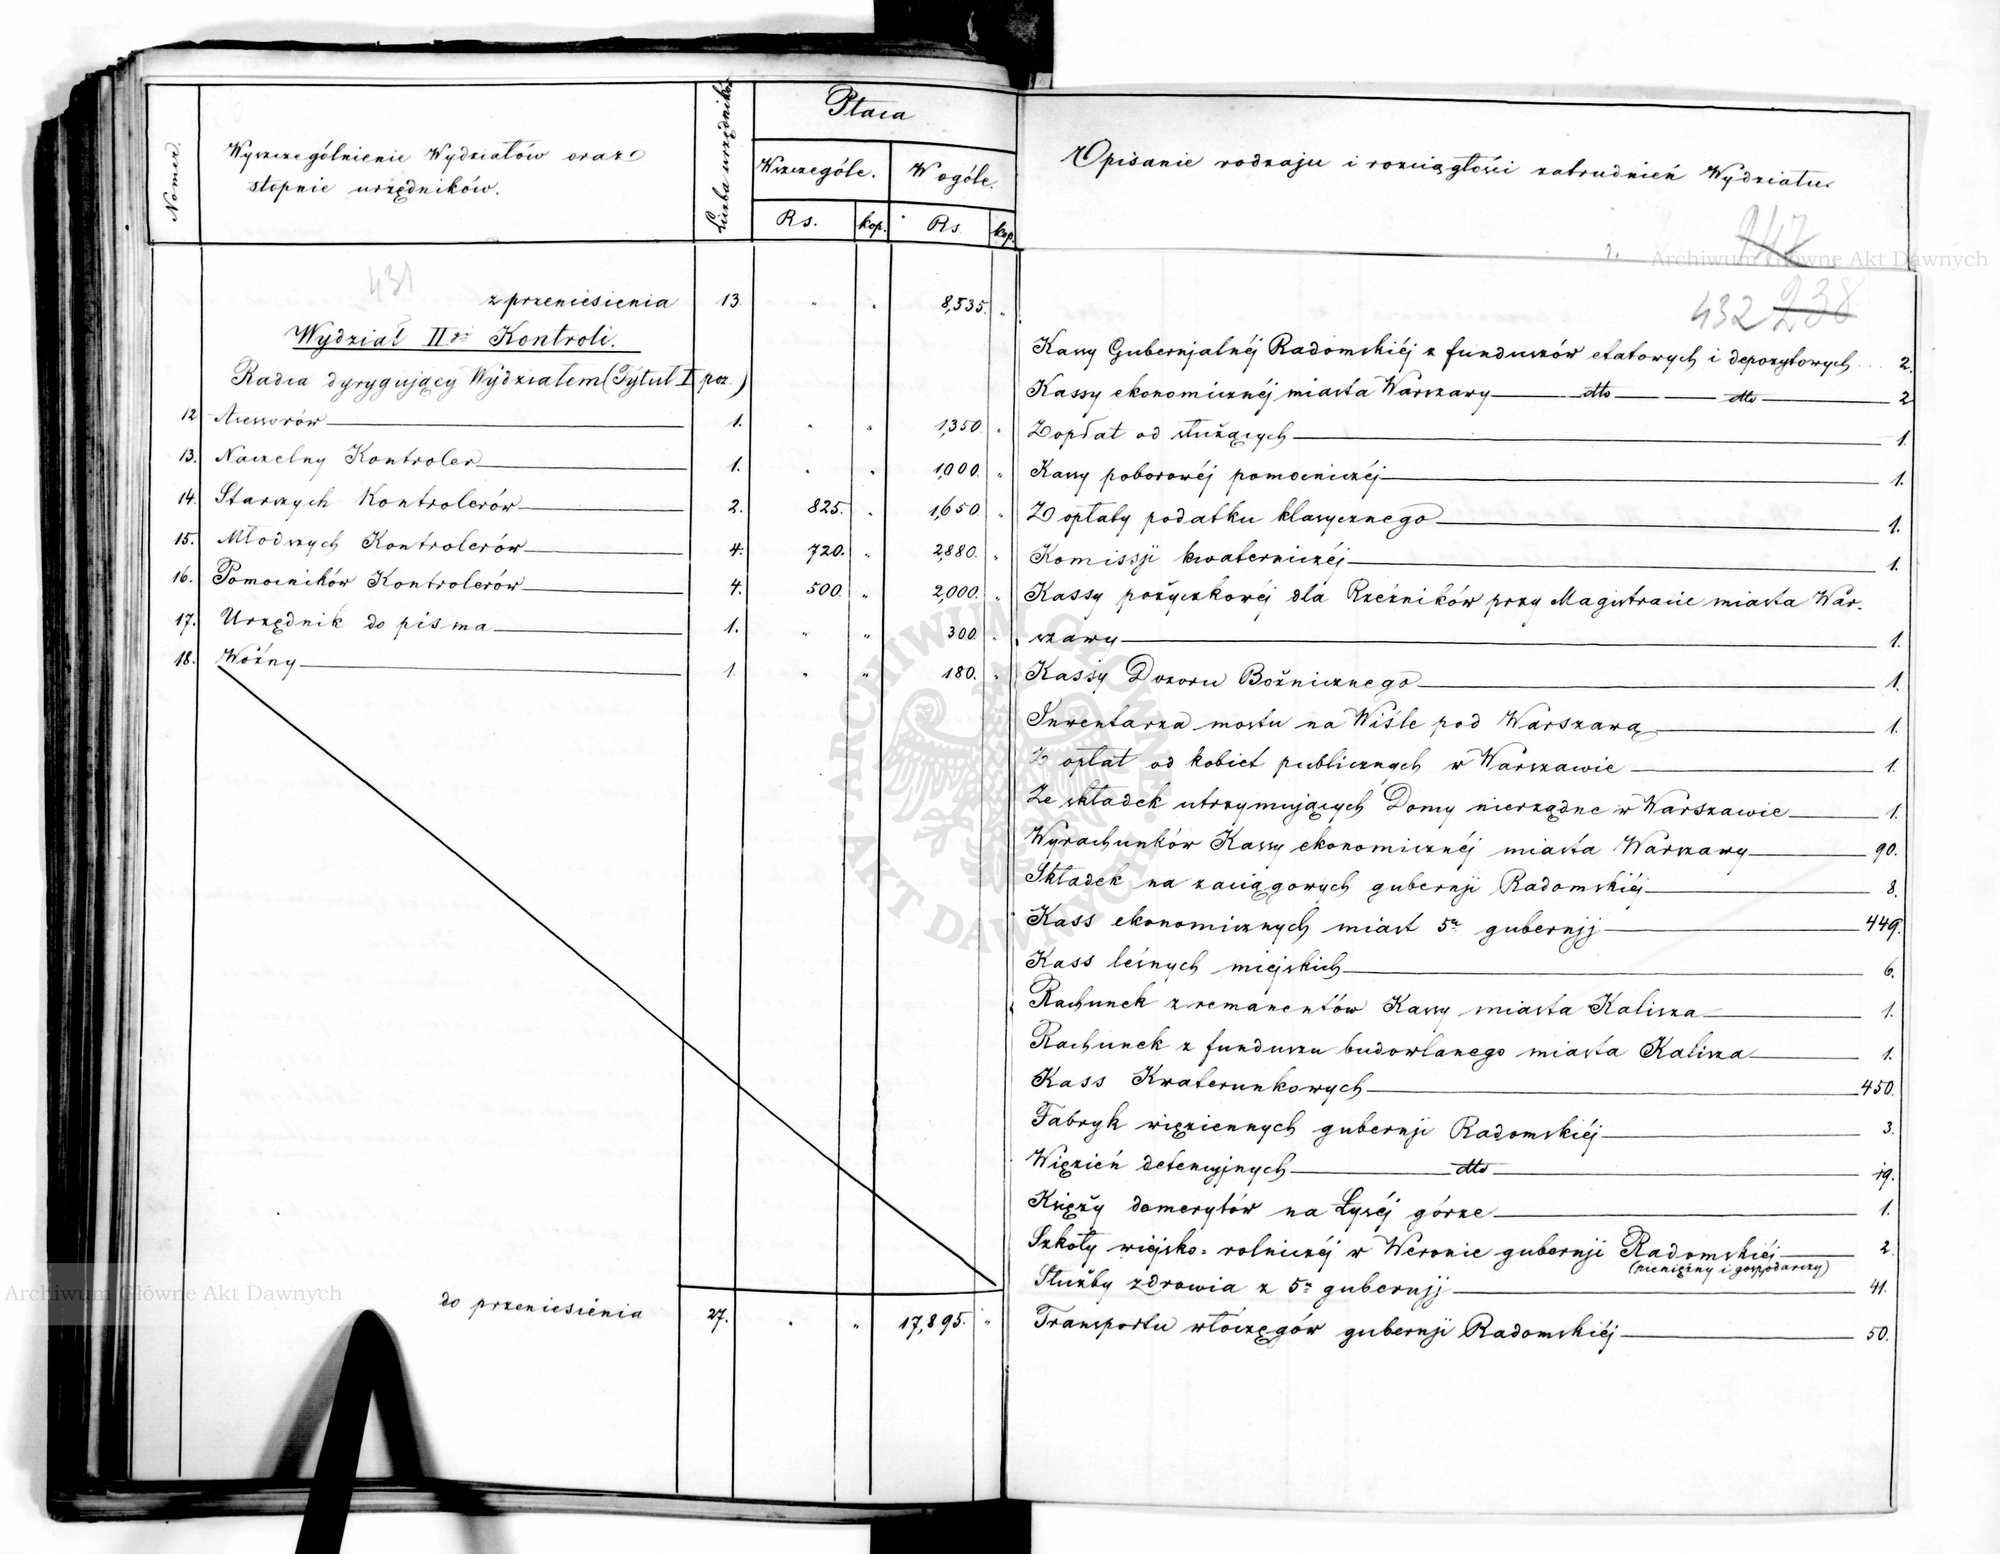 Nomer.
Wyszczególnienie Wydziałów oraz
stopnie urzędników.
Liczba urzędników
Płaca
Wszczególe.
W ogóle.
Rs. kop. Rs. kop.
431
z przeniesienia 13. " " 8,535. "
Wydział IIgi Kontroli.
Radca dyrygujący Wydziałem (Tytuł I poz.)
12 Assessorów 1. " " 1,350. "
13. Naczelny Kontroler 1. " " 1,000. "
14. Starszych Kontrolerów 2. 825. " 1,650 "
15. Młodszych Kontrolerów 4. 720. " 2,880. "
16. Pomocników Kontrolerów 4. 500. " 2,000. "
17. Urzędnik do pisma 1. " " 300. "
18. Woźny 1. " " 180. "
do przeniesienia 27. " " 17,895. "
Opisanie rodzaju i rozciągłości zatrudnień Wydziału.
247
432 238
Kassy Gubernjalnéj Radomskiéj z funduszów etatowych i depozytowych 2.
Kassy ekonomicznéj miasta Warszawy dtto dtto 2
Z opłat od służących 1.
Kassy poborowéj pomocniczéj 1.
Z opłaty podatku klassycznego 1.
Komissji kwaterniczéj 1.
Kassy pożyczkowéj dla Rzeźników przy Magistracie miasta War-
szawy 1.
Kassy Dozoru Bożnicznego 1.
Inwentarza mostu na Wiśle pod Warszawą 1.
Z opłat od kobiet publicznych w Warszawie 1.
Ze składek utrzymujących Domy nierządne w Warszawie 1.
Wyrachunków Kassy ekonomicznéj miasta Warszawy 90.
Składek na zaciągowych gubernji Radomskiéj 8.
Kass ekonomicznych miast 5u gubernji 449.
Kass leśnych miejskich 6.
Rachunek z remanentów Kassy miasta Kalisza 1.
Rachunek z funduszu budowlanego miasta Kalisza 1.
Kass Kwaterunkowych 450.
Fabryk więziennych gubernji Radomskiéj 3.
Więzień detencyjnych dtto 19.
Księży demerytów na Łyséj górze 1.
Szkoły wiejsko-rolniczéj w Weronie gubernji Radomskiéj 2.
(pieniężny i gospodarczy)
Służby zdrowia z 5u gubernji 41.
Transportu włóczęgów gubernji Radomskiéj 50.
Archiwum Główne Akt Dawnych
Archiwum Główne Akt Dawnych
ARCHIWUM GŁÓWNE AKT DAWNYCH